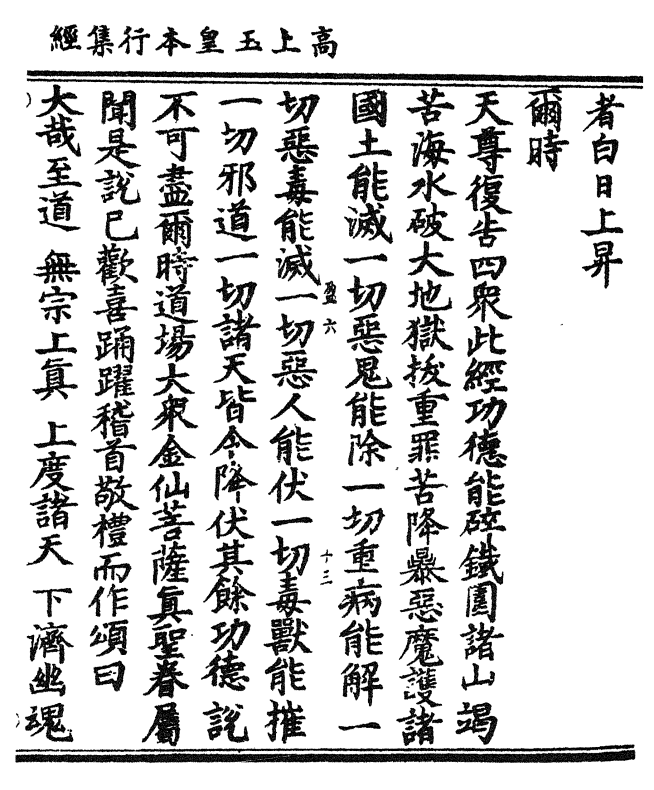 高上玉皇本行集經
者白日上昇
爾時
天尊復告四衆此經功德能碎鐵圍諸山竭
苦海水破大地獄拔重罪苦降暴惡魔護諸
國土能滅一切惡鬼能除一切重病能解一
盈六
十三
切惡毒能滅一切惡人能伏一切毒獸能摧
一切邪道一切諸天皆令降伏其餘功德說
不可盡爾時道場大衆金仙菩薩眞聖眷屬
聞是說已歡喜踊躍稽首敬禮而作頌曰
大哉至道 無宗上眞 上度諸天 下濟幽魂